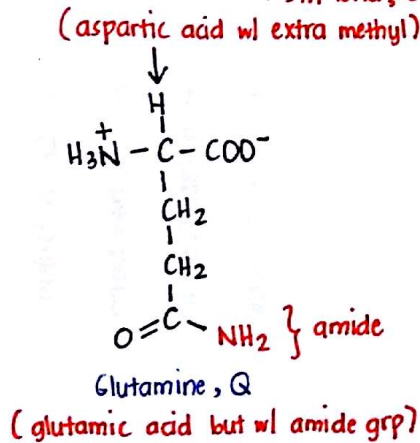 (aspartic acid w/ extra methyl)
H
+
H₃N - C - COO⁻
CH₂
CH₂
O=C-NH₂ } amide
Glutamine, Q
(glutamic acid but w/ amide grp)